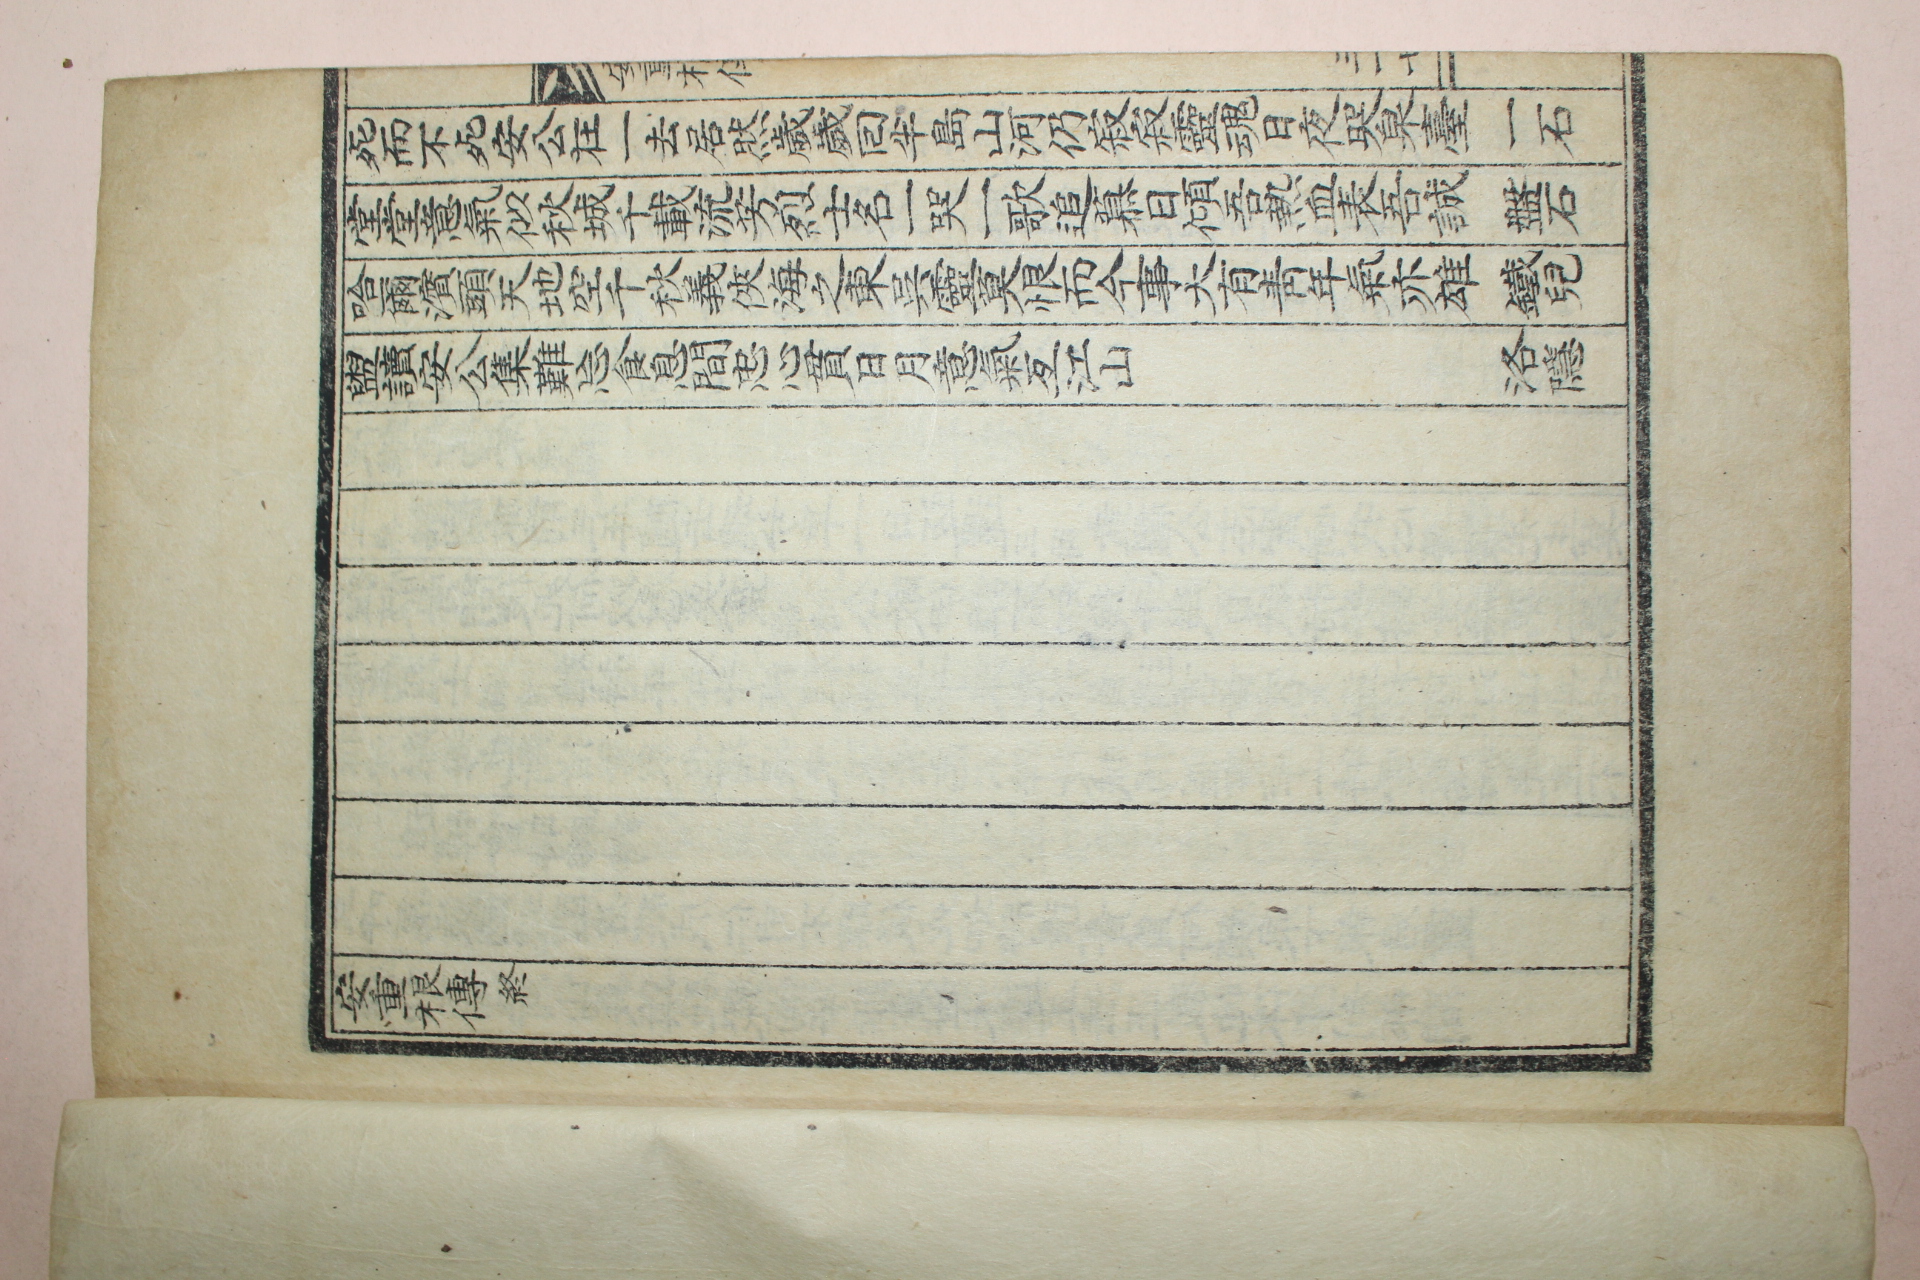 安重根傳
死而不死安公在一去居然歲歲回半島山河仍寂寂靈魂日夜哭泉臺 一石
堂堂意氣似秋城千載流芳烈士名一哭一歌追慕日傾吾熱血表吾誠 盤石
哈爾濱頭天地空千秋義俠海之東靈莫恨而今事大有靑年氣亦雄 鐵兒
盥讀安公集難忘食息間忠心貫日月意氣亙江山 洛隱
安重根傳終